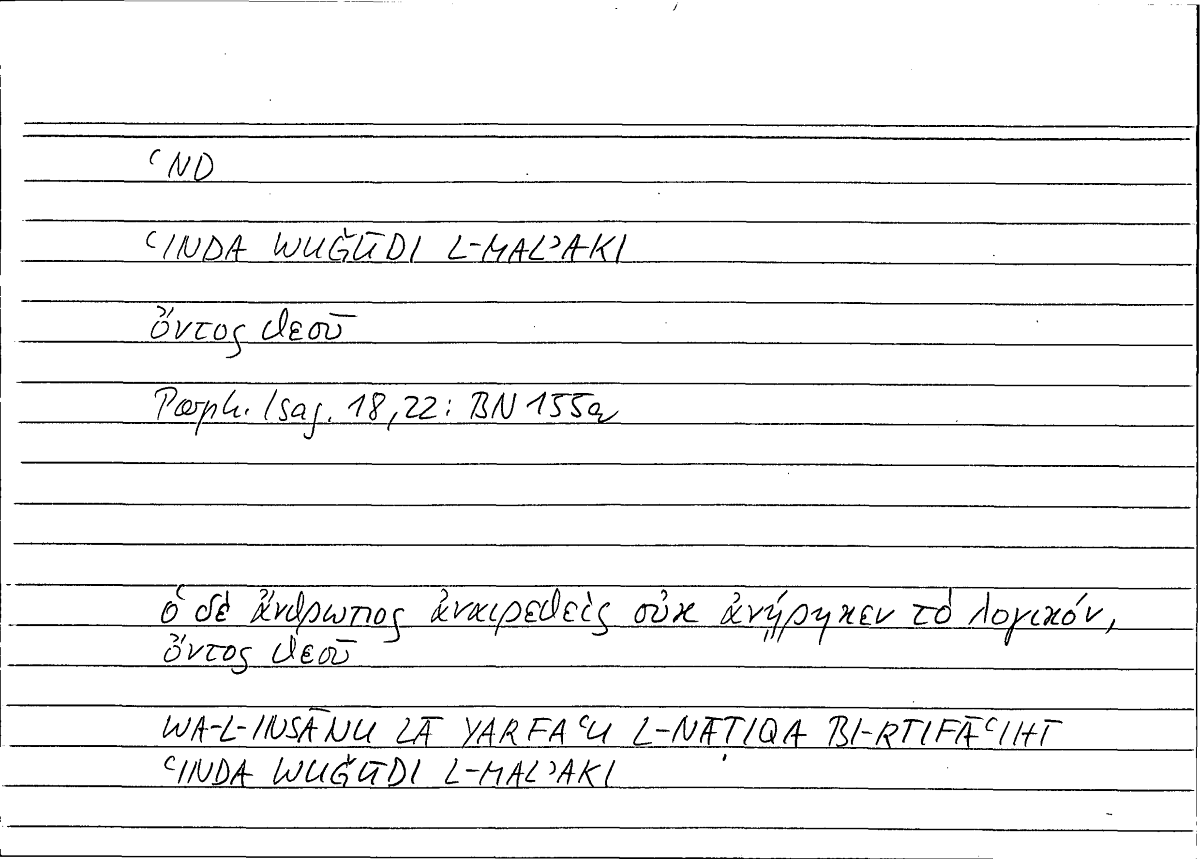 ʿND
ʿINDA WUǦŪDI L-MALʾAKI
ὄντος θεοῦ
Porph. Isag. 18,22: BN 155a
ὁ δὲ ἄνθρωπος ἀναιρεθεὶς οὐκ ἀνῄρηκεν τὸ λογικόν,
ὄντος θεοῦ
WA-L-INSĀNU LĀ YARFAʿU L-NĀṬIQA BI-RTIFĀʿIHĪ
ʿINDA WUǦŪDI L-MALʾAKI